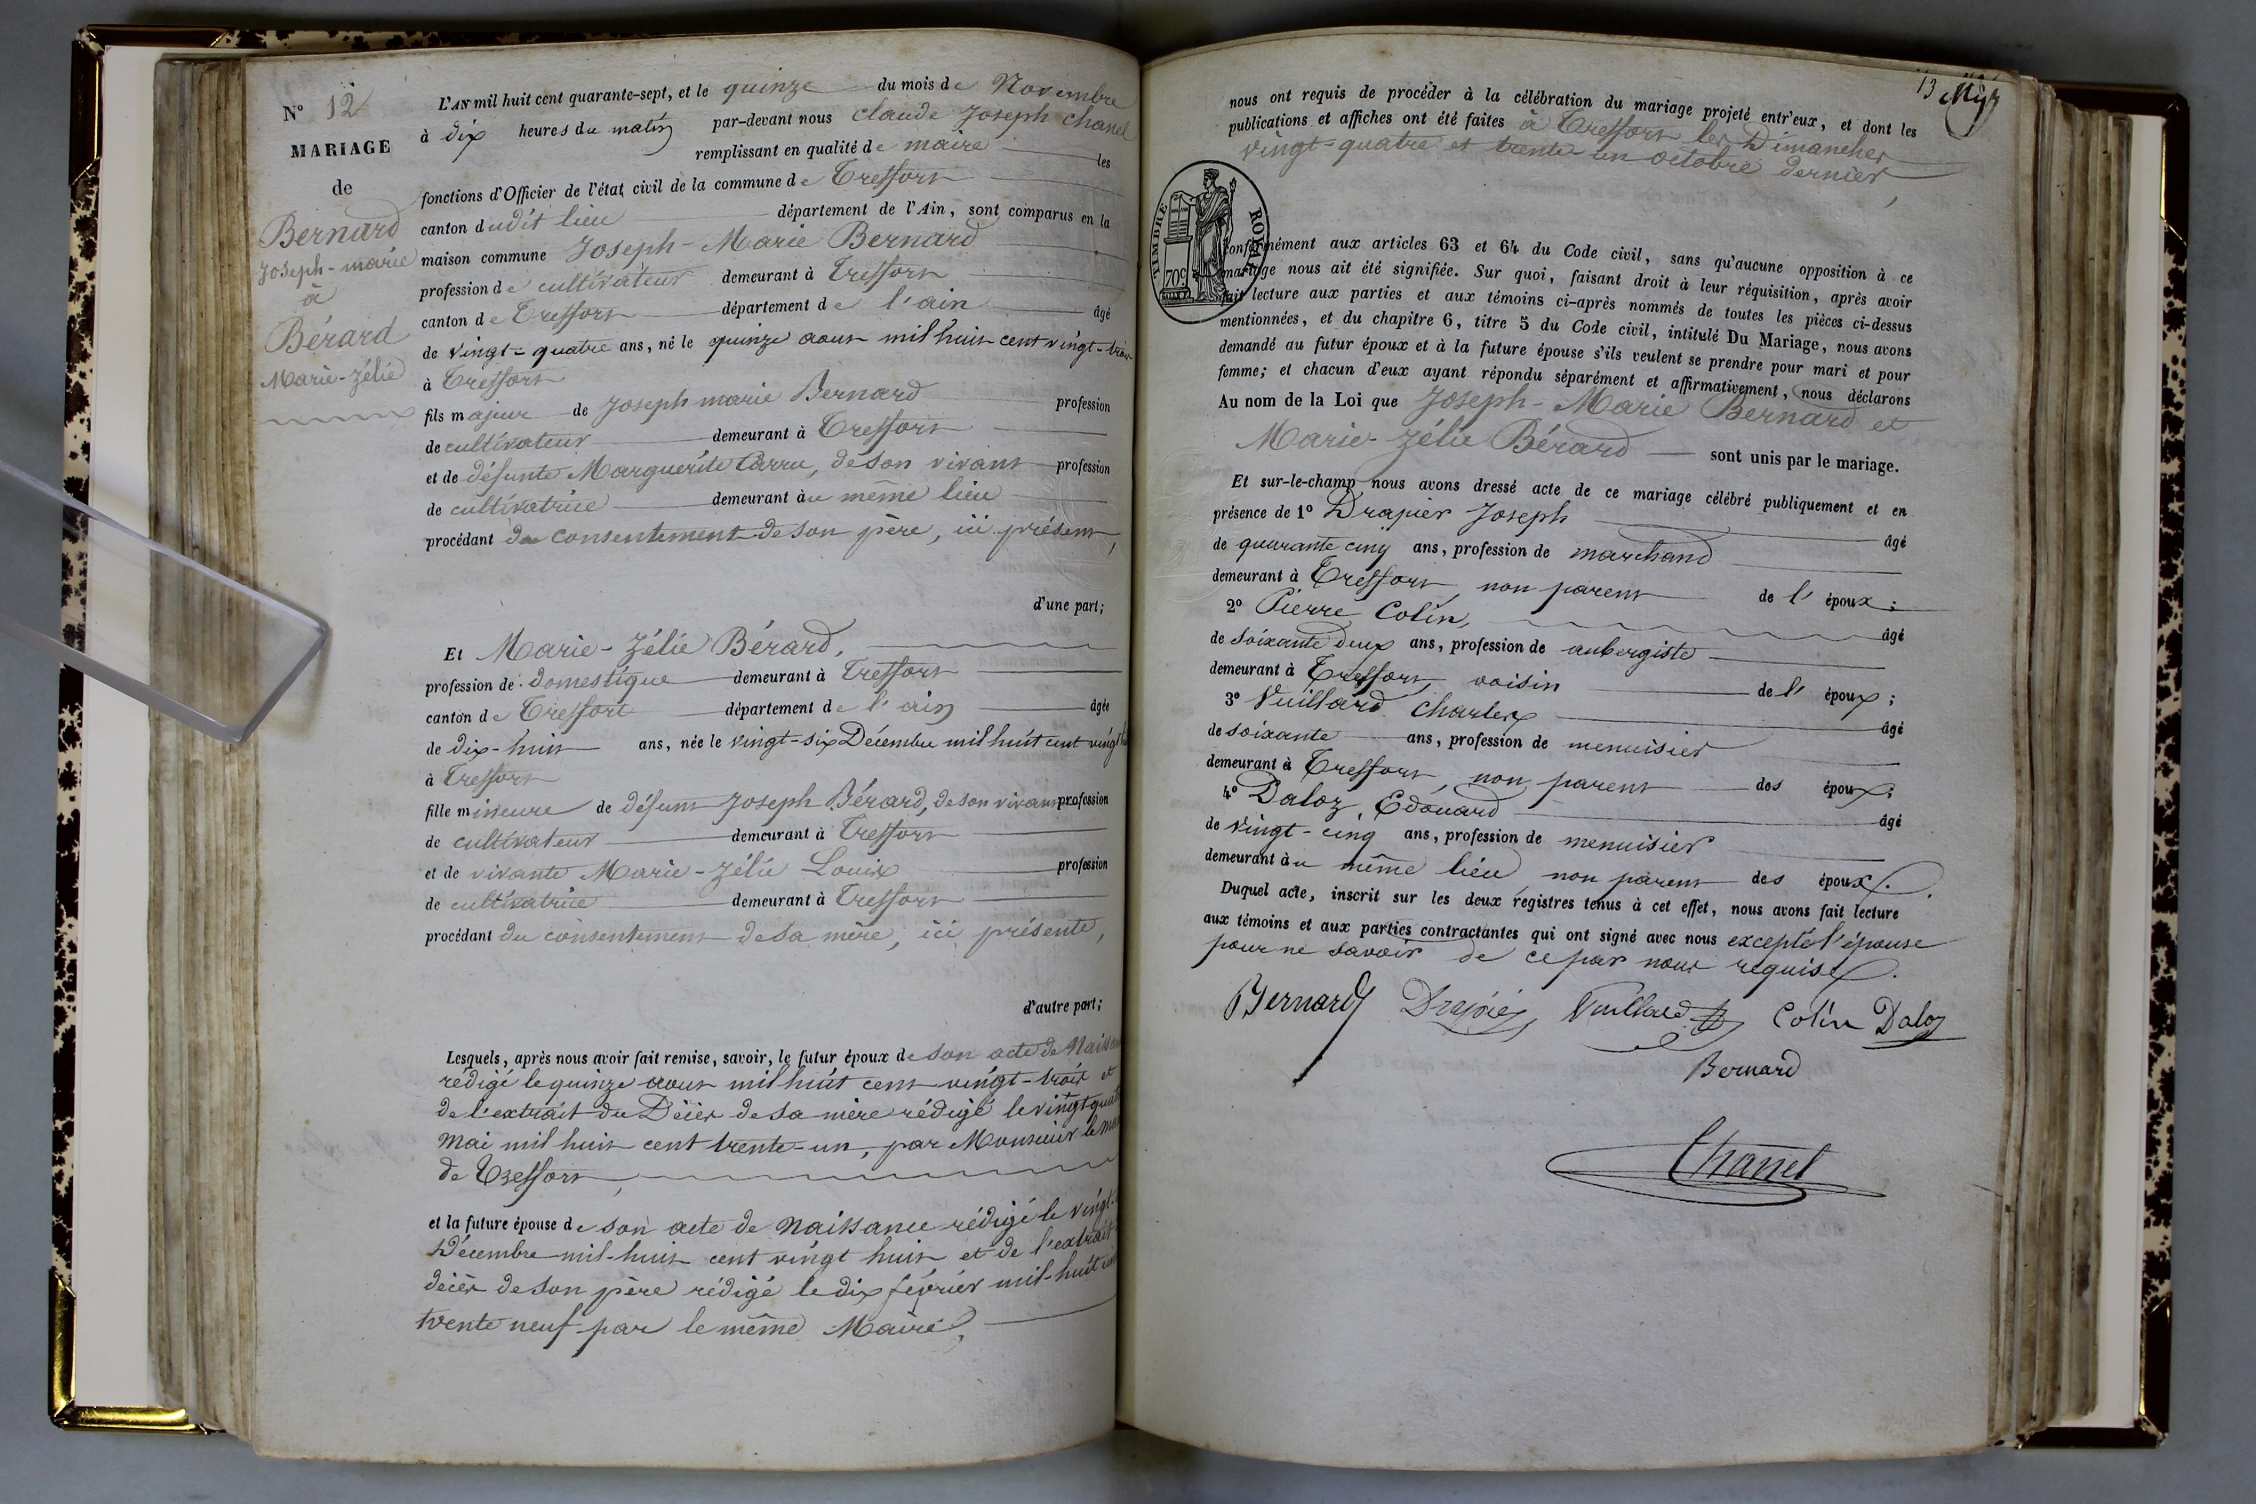 N° 12
MARIAGE
de
Bernard
Joseph-marie
à
Bérard
Marie-Zélie
L'AN mil huit cent quarante-sept, et le quinze du mois de Novembre
à dix heures du matin par-devant nous claude Joseph chanel
remplissant en qualité de maire les
fonctions d'Officier de l'état civil de la commune de Treffort
canton dudit lieu département de l'Ain, sont comparus en la
maison commune Joseph-Marie Bernard
profession de cultivateur demeurant à Treffort
canton de Treffort département de l'ain âgé
de vingt-quatre ans, né le quinze aout mil huit cent vingt-trois
à Treffort
fils majeur de Joseph marie Bernard profession
de cultivateur demeurant à Treffort
et de défunte Marguerite Carru, de son vivant profession
de cultivatrice demeurant au même lieu
procédant du consentement de son père, ici présent,
d'une part;
Et Marie-Zélie Bérard,
profession de domestique demeurant à Treffort
canton de Treffort département de l'ain âgée
de dix-huit ans, née le vingt-six Décembre mil huit cent vingt
à Treffort
fille mineure de défunt Joseph Bérard, de son vivant profession
de cultivateur demeurant à Treffort
et de vivante Marie-Zélie Louis profession
de cultivatrice demeurant à Treffort
procédant du consentement de sa mère, ici présente,
d'autre part;
Lesquels, après nous avoir fait remise, savoir, le futur époux de son acte de Naissance
rédigé le quinze aout mil huit cent vingt-trois et
de l'extrait du Décès de sa mère rédigé le vingt quatre
Mai mil huit cent trente-un, par Monsieur le maire
de Treffort,
et la future épouse de son acte de Naissance rédigé le vingt-
Décembre mil-huit cent vingt huit et de l'extrait
décès de son père rédigé le dix février mil-huit cent
trente neuf par le même Maire,
13
nous ont requis de procéder à la célébration du mariage projeté entr'eux, et dont les
publications et affiches ont été faites à Treffort les Dimanches
vingt-quatre et trente-un octobre dernier,
TIMBRE ROYAL
70c
conformément aux articles 63 et 64 du Code civil, sans qu'aucune opposition à ce
mariage nous ait été signifiée. Sur quoi, faisant droit à leur réquisition, après avoir
fait lecture aux parties et aux témoins ci-après nommés de toutes les pièces ci-dessus
mentionnées, et du chapitre 6, titre 5 du Code civil, intitulé Du Mariage, nous avons
demandé au futur époux et à la future épouse s'ils veulent se prendre pour mari et pour
femme; et chacun d'eux ayant répondu séparément et affirmativement, nous déclarons
Au nom de la Loi que Joseph-Marie Bernard et
Marie-Zélie Bérard sont unis par le mariage.
Et sur-le-champ nous avons dressé acte de ce mariage célébré publiquement et en
présence de 1° Drapier Joseph âgé
de quarante cinq ans, profession de marchand
demeurant à Treffort, non parent de l'époux;
2° Pierre Colin, âgé
de soixante deux ans, profession de aubergiste
demeurant à Treffort, voisin de l'époux;
3° Vuillard Charles âgé
de soixante ans, profession de menuisier
demeurant à Treffort, non parent des époux;
4° Daloz, Edouard âgé
de vingt-cinq ans, profession de menuisier
demeurant au même lieu non parent des époux.
Duquel acte, inscrit sur les deux registres tenus à cet effet, nous avons fait lecture
aux témoins et aux parties contractantes qui ont signé avec nous excepté l'épouse
pour ne savoir de ce par nous requise.
Bernard Drapier Vuillard Colin Daloz
Bernard
Chanel